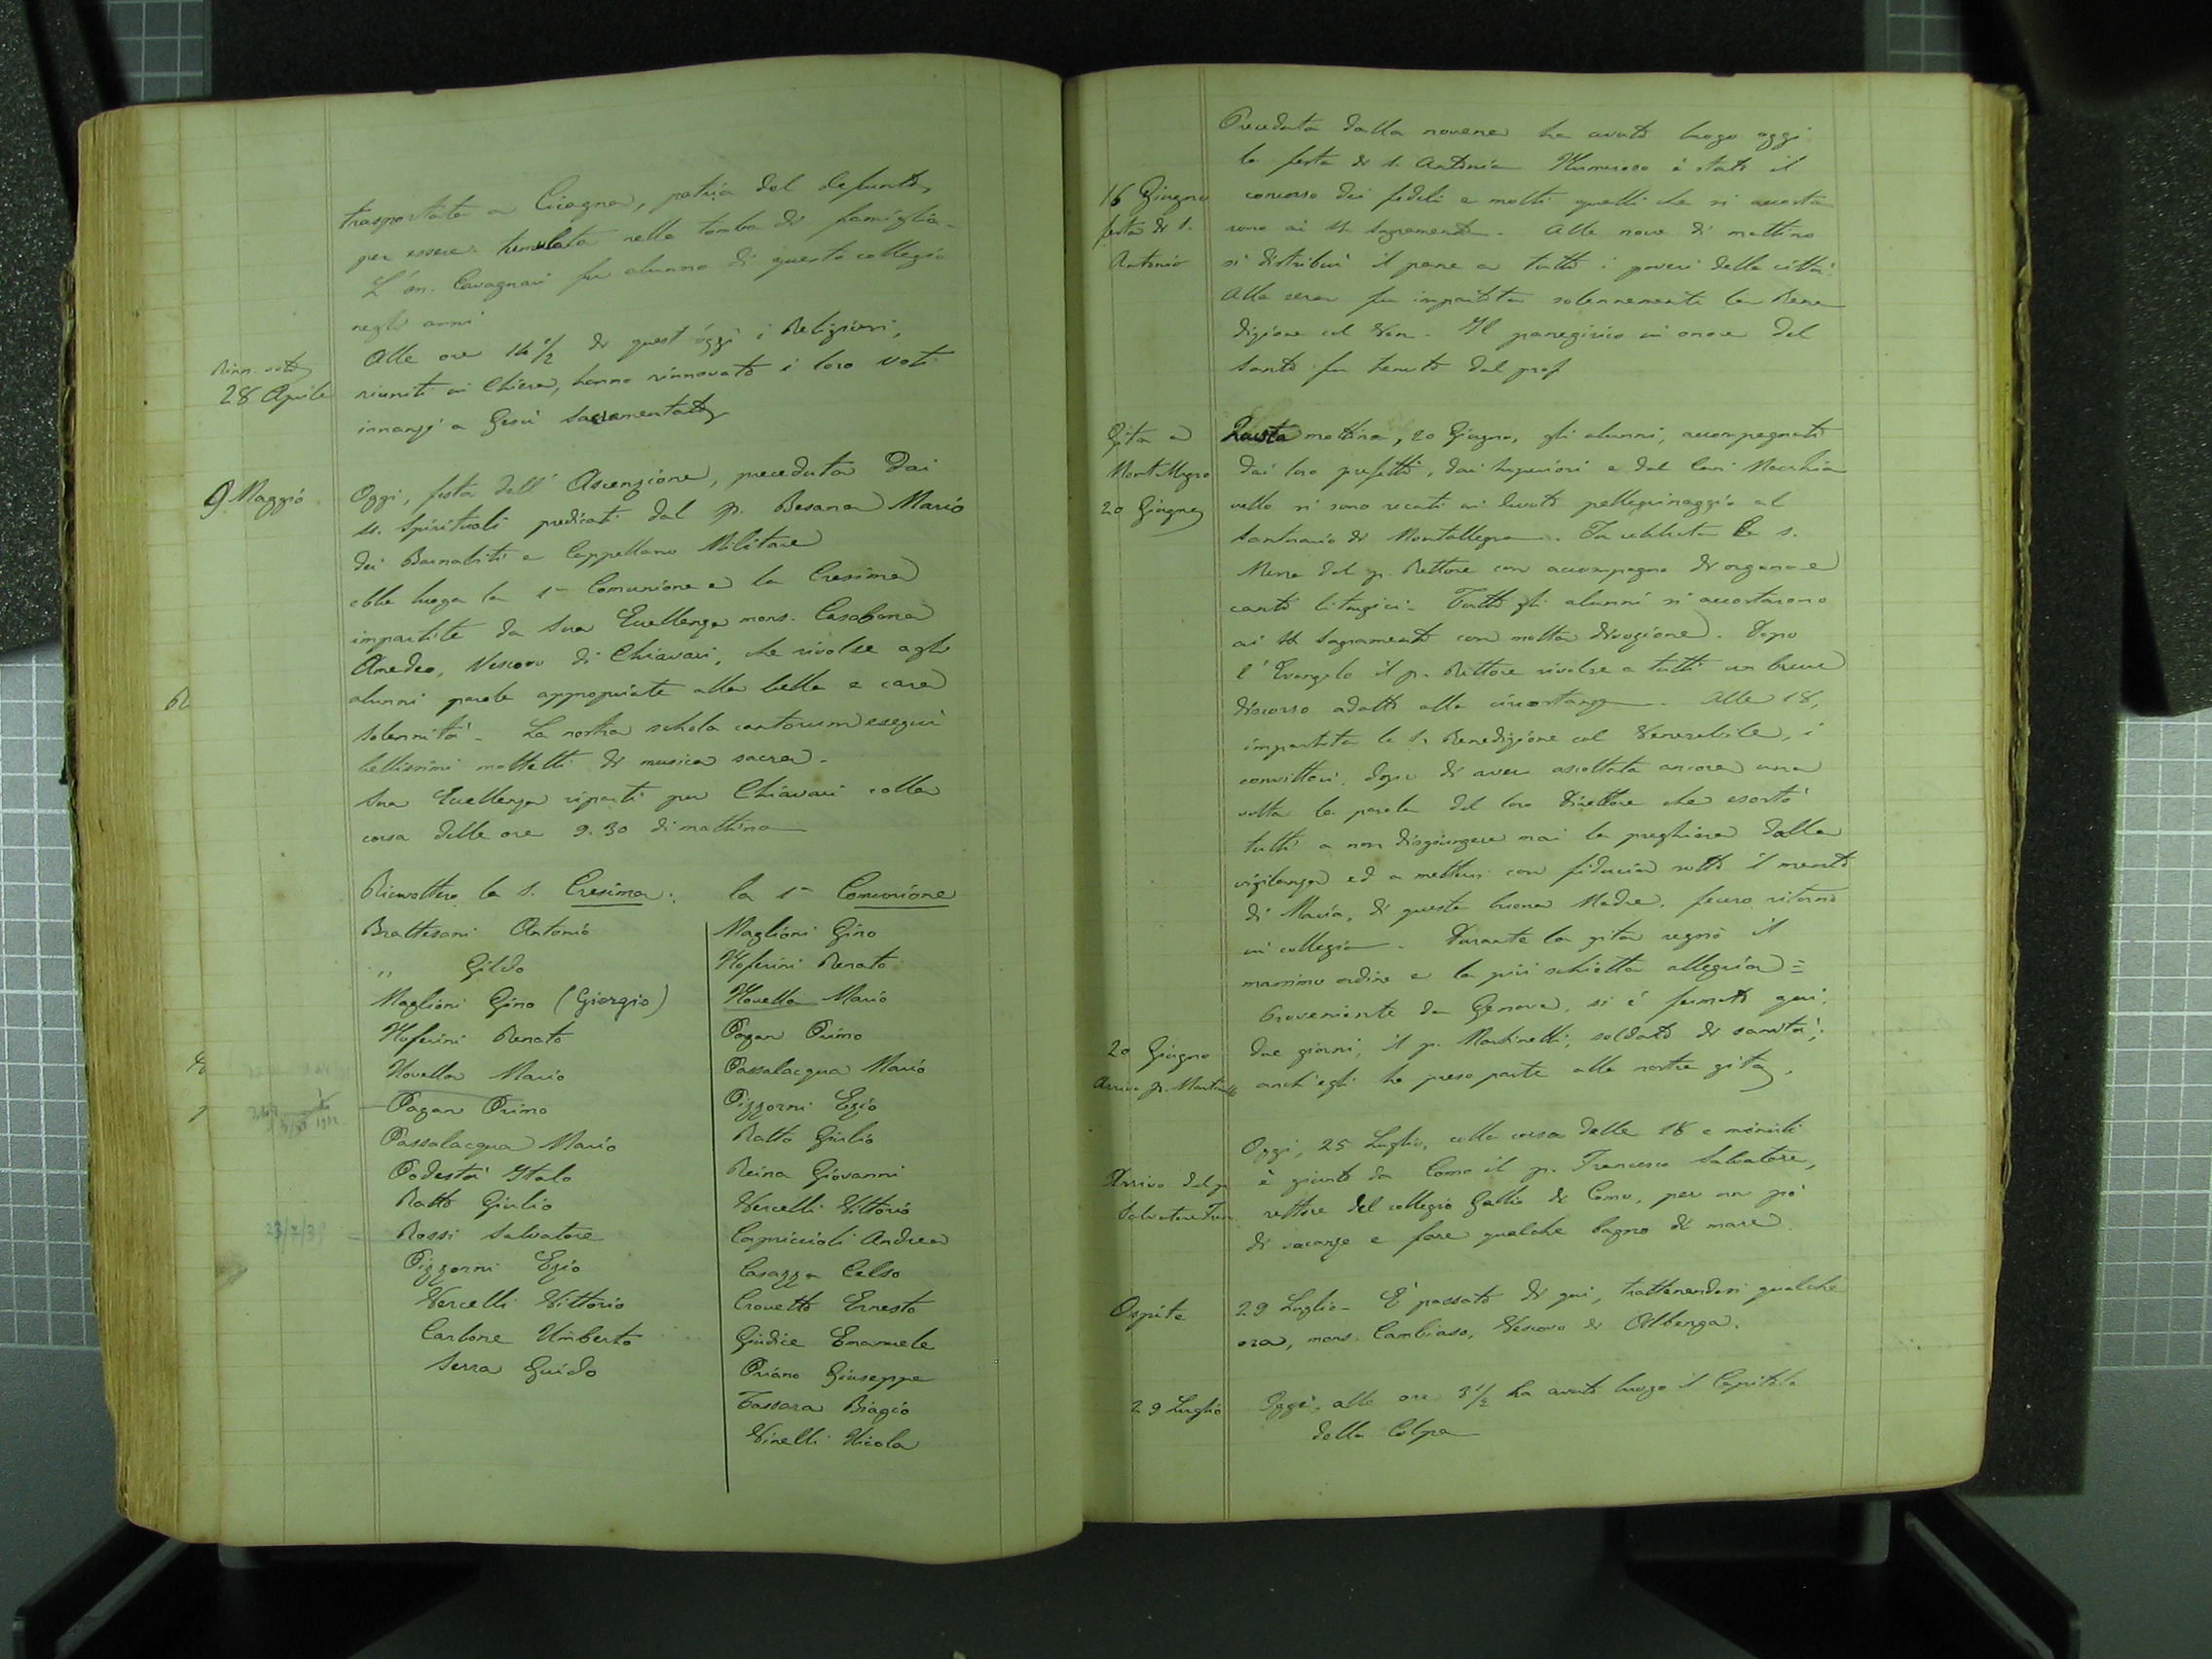 trasportata a Cicagna, patria del defunto,
per essere tumulata nella tomba di famiglia.
L'on. Cavagnari fu alunno di questo collegio
negli anni
Rinn. voti
28 Aprile
Alle ore 14 1/2 di quest'oggi i Religiosi,
riuniti in Chiesa, hanno rinnovato i loro voti
innanzi a Gesù Sacramentato
9 Maggio
Oggi, festa dell'Ascensione, preceduta dai
ss. Spirituali predicati dal p. Besana Mario
dei Barnabiti e Cappellano Militare
ebbe luogo la 1a Comunione e la Cresima
impartite da Sua Eccellenza mons. Casabona
Amedeo, Vescovo di Chiavari, che rivolse agli
alunni parole appropriate alla bella e cara
solennità. La nostra schola cantorum eseguì
bellissimi mottetti di musica sacra.
Sua Eccellenza ripartì per Chiavari colla
corsa delle ore 9.30 di mattina
Ricevettero la S. Cresima: la 1a Comunione
Brattesani Antonio
" Gildo
Maglioni Gino (Giorgio)
Noferini Renato
Novella Mario
Pagan Primo
Passalacqua Mario
Podestà Italo
Ratto Giulio
23/2/39
Rossi Salvatore
Pizzorni Ezio
Vercelli Vittorio
Carbone Umberto
Serra Guido
Maglioni Gino
Noferini Renato
Novella Mario
Pagan Primo
Passalacqua Mario
Pizzorni Ezio
Ratto Giulio
Reina Giovanni
Vercelli Vittorio
Capriccioli Andrea
Casazza Celso
Crovetto Ernesto
Giudice Emanuele
Oriano Giuseppe
Tassara Biagio
Vinelli Nicola
16 Giugno
festa di S.
Antonio
Preceduta dalla novena ha avuto luogo oggi
la festa di S. Antonio Numeroso è stato il
concorso dei fedeli e molti quelli che si accosta
rono ai SS. Sagramenti. Alle nove di mattino
si distribuì il pane a tutti i poveri della città.
Alla sera fu impartita solennemente la Bene
dizione col Ven. Il panegirico in onore del
Santo fu tenuto dal prof
Gita a
Mont Allegro
20 Giugno
Questa mattina, 20 Giugno, gli alunni, accompagnati
dai loro prefetti, dai Superiori e dal Cav.
vello si sono recati in devoto pellegrinaggio al
Santuario di Montallegro. Fu celebrata la S.
Messa dal p. Rettore con accompagno di organo e
canti liturgici. Tutti gli alunni si accostarono
ai SS. Sagramenti con molta divozione. Dopo
l'Evangelo il p. Rettore rivolse a tutti un breve
discorso adatto alla circostanza. Alle 18,
impartita la S. Benedizione col Venerabile, i
convittori, dopo di aver ascoltata ancora una
volta la parola del loro Direttore che esortò
tutti a non disgiungere mai la preghiera dalla
vigilanza ed a mettersi con fiducia sotto il manto
di Maria, di questa buona Madre, fecero ritorno
in collegio. Durante la gita regnò il
massimo ordine e la più schietta allegria =
20 Giugno
Arrivo p. Martinelli
Proveniente da Genova, si è fermato qui,
due giorni, il p. Martinelli, soldato di sanità;
anch'egli ha preso parte alla nostra gita.
Arrivo del p.
Salvatore Fran.
Oggi, 25 Luglio, colla corsa delle 18 e minuti
è giunto da Como il p. Francesco Salvatore,
rettore del collegio Gallio di Como, per un pò
di vacanze e fare qualche bagno di mare.
Ospite
29 Luglio - È passato di qui, trattenendosi qualche
ora, mons. Cambiaso, Vescovo di Albenga.
29 Luglio
Oggi, alle ore 3 1/2 ha avuto luogo il Capitolo
della Colpa